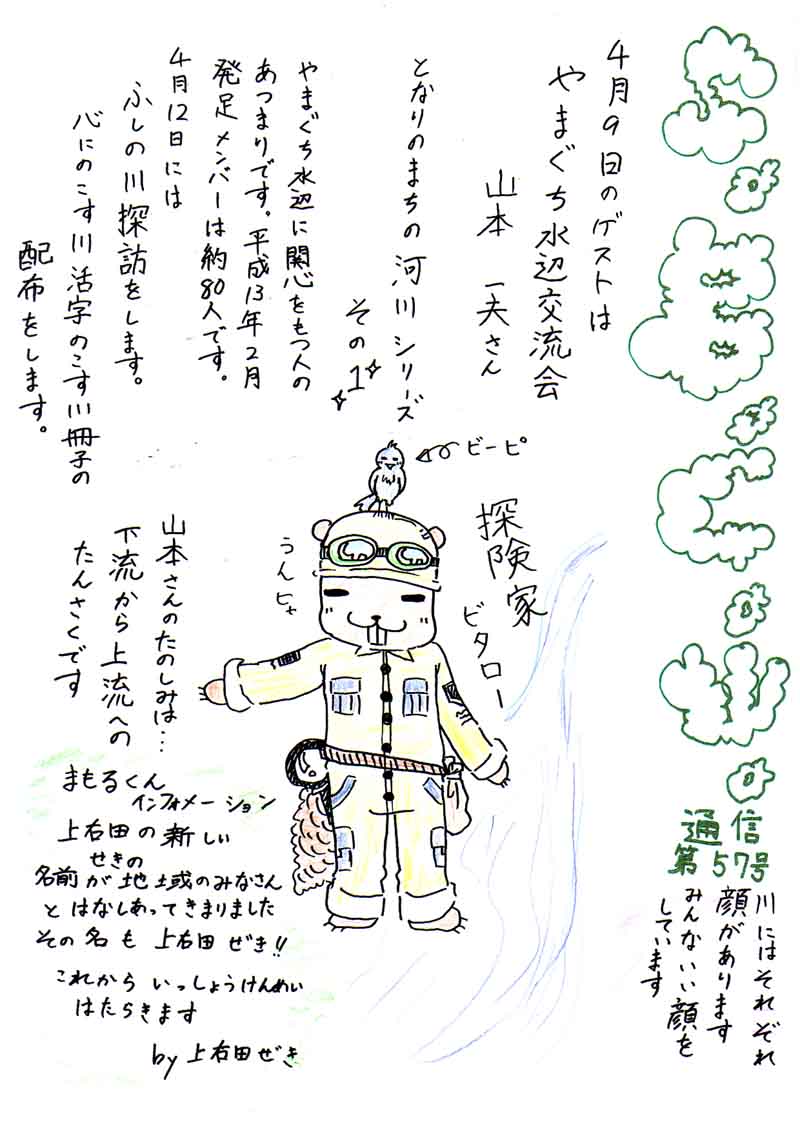 SaBaGaWa
通信
第57号
川にはそれぞれ
顔があります
みんないい顔を
しています
4月9日のゲストは
やまぐち水辺交流会
山本 一夫さん
となりのまちの河川シリーズ
その1
やまぐち水辺に関心をもつ人の
あつまりです。平成13年2月
発足メンバーは約80人です。
4月12日には
ふしの川探訪をします。
心にのこす川活字のこす川冊子の
配布をします。
ビーピ
探険家
ビタロー
山本さんのたのしみは…
下流から上流への
たんさくです
まもるくん
インフォメーション
上右田の新しい
せきの
名前が地域のみなさん
とはなしあってきまりました
その名も 上右田ぜき!!
これからいっしょうけんめい
はたらきます
by 上右田ぜき